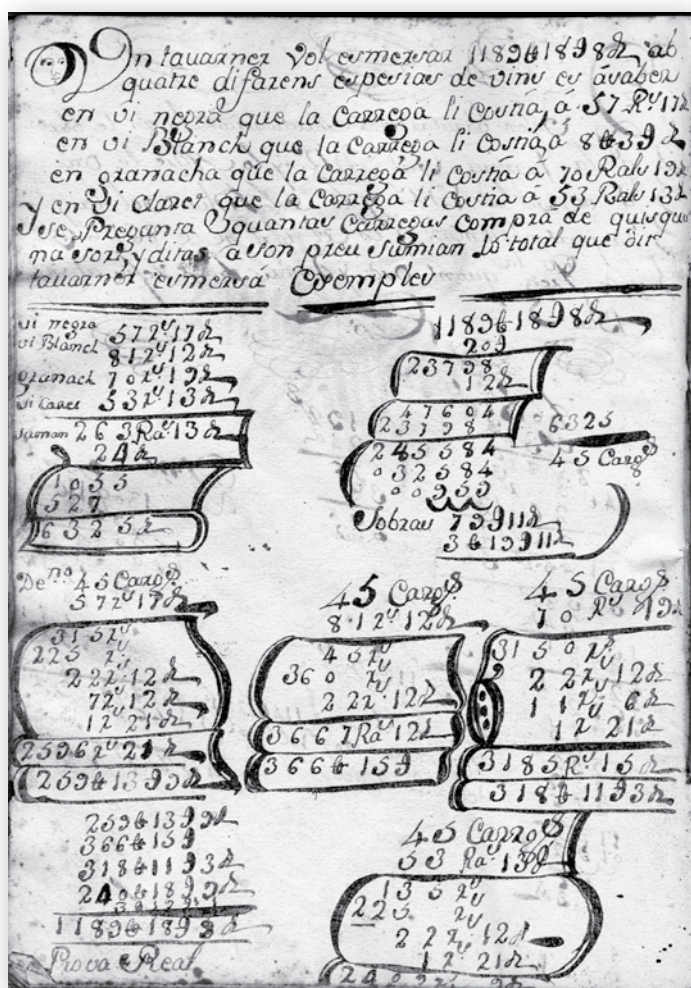 Un tauarner vol esmersar 1189₶18ſ8₰ ab
quatre difarens espesias de vins es asaber
en vi negra que la Carrega li Costia, á 57 Rˢ 17₰
en vi Blanch que la Carrega li Costia, á 8₶3ſ
en granacha que la Carrega li Costia á 70 Rals 19₰
y en Vi Claret que la Carrega li Costia á 53 Rals 13₰
y se Pregunta quantas Carregas Compra de quisqu
na sort, y ditas á son preu sumian lo total que dit
tauarner esmersá Exemples
vi negra 57 rˢ 17₰
vi Blanch 81 rˢ 12₰
granach 70 rˢ 19₰
vi Claret 53 rˢ 13₰
suman 263 Raˢ 13₰
24₰
1055
527
6325₰
1189₶18ſ8₰
20ſ
23798
12₰
47604
23798
285584
032584
00959
6325
45 Cargˢ
Sobran 79ſ11₰
3₶19ſ11₰
De nᵒ 45 Cargˢ
57 rˢ 17₰
315 rˢ
225 rˢ
22 rˢ 12₰
7 rˢ 12₰
1 rˢ 21₰
2596 rˢ 21₰
259₶13ſ9₰
45 Cargˢ
81 rˢ 12₰
45 rˢ
360 rˢ
22 rˢ 12₰
3667 Raˢ 12₰
366₶15ſ
45 Cargˢ
70 Rˢ 19₰
3150 rˢ
22 rˢ 12₰
11 rˢ 6₰
1 rˢ 21₰
3185 Rˢ 15₰
318₶11ſ3₰
259₶13ſ9₰
366₶15ſ
318₶11ſ3₰
240₶18ſ9₰
1189₶18ſ8₰
Prova Real
45 Cargˢ
53 Raˢ 13₰
135 rˢ
225 rˢ
22 rˢ 12₰
1 rˢ 21₰